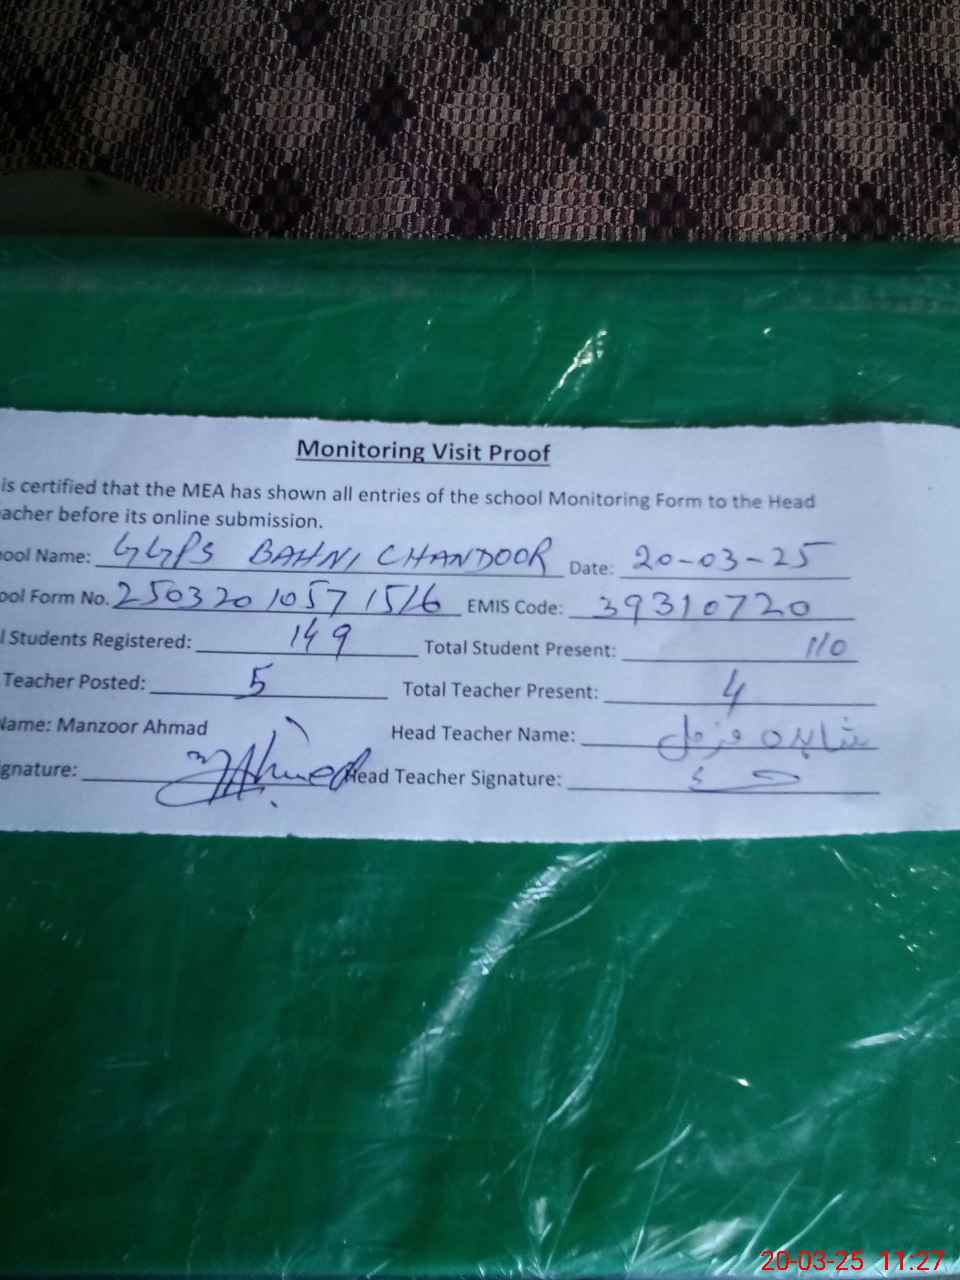 Monitoring Visit Proof
is certified that the MEA has shown all entries of the school Monitoring Form to the Head
acher before its online submission.
ool Name: GGPS BAHNI CHANDOOR Date: 20-03-25
ool Form No. 25032010571516 EMIS Code: 39310720
l Students Registered: 149 Total Student Present: 110
Teacher Posted: 5 Total Teacher Present: 4
Name: Manzoor Ahmad Head Teacher Name: شاہدہ مزمل
gnature: Ahmed Head Teacher Signature:
20-03-25 11:27